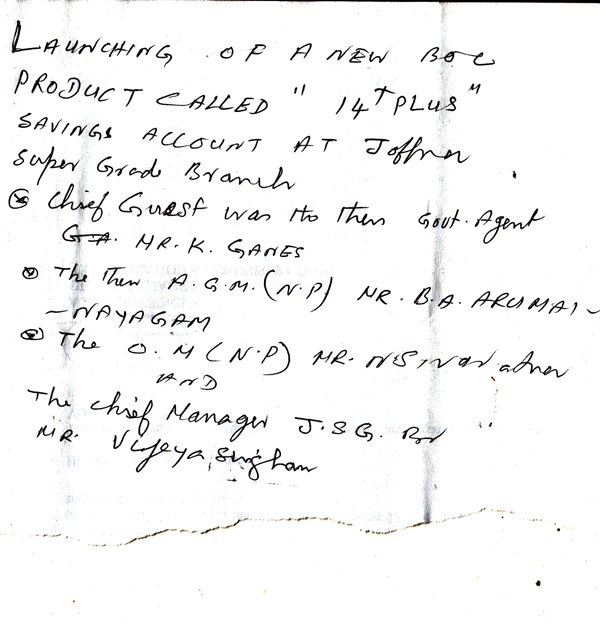 LAUNCHING OF A NEW BOC
PRODUCT CALLED " 14+ PLUS"
SAVINGS ACCOUNT AT Jaffna
Super Grade Branch
Chief Guest was the then Govt. Agent
G.A. MR. K. GANES
The Then A.G.M. (N.P) MR. B.A. ARUMAI-
-NAYAGAM
The O.M (N.P) MR.
AND
The Chief Manager J.S.G. Br "
MR. Vijeya Singham